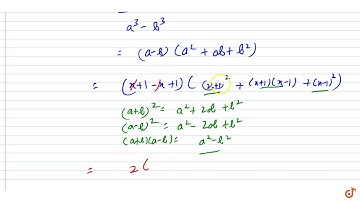 a³ - b³
= (a-b) (a² + ab + b²)
= (x+1-x+1) ( (x+1)² + (x+1)(x-1) + (x-1)² )
(a+b)² = a² + 2ab + b²
(a-b)² = a² - 2ab + b²
(a+b)(a-b) = a² - b²
= 2 (